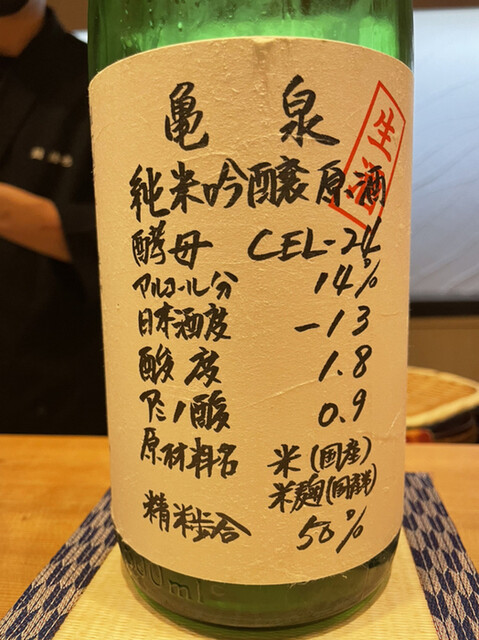 亀泉
生酒
純米吟醸原酒
酵母 CEL-24
アルコール分 14%
日本酒度 -13
酸度 1.8
アミノ酸 0.9
原材料名 米(国産)
米麹(同群)
精米歩合 50%
00ml